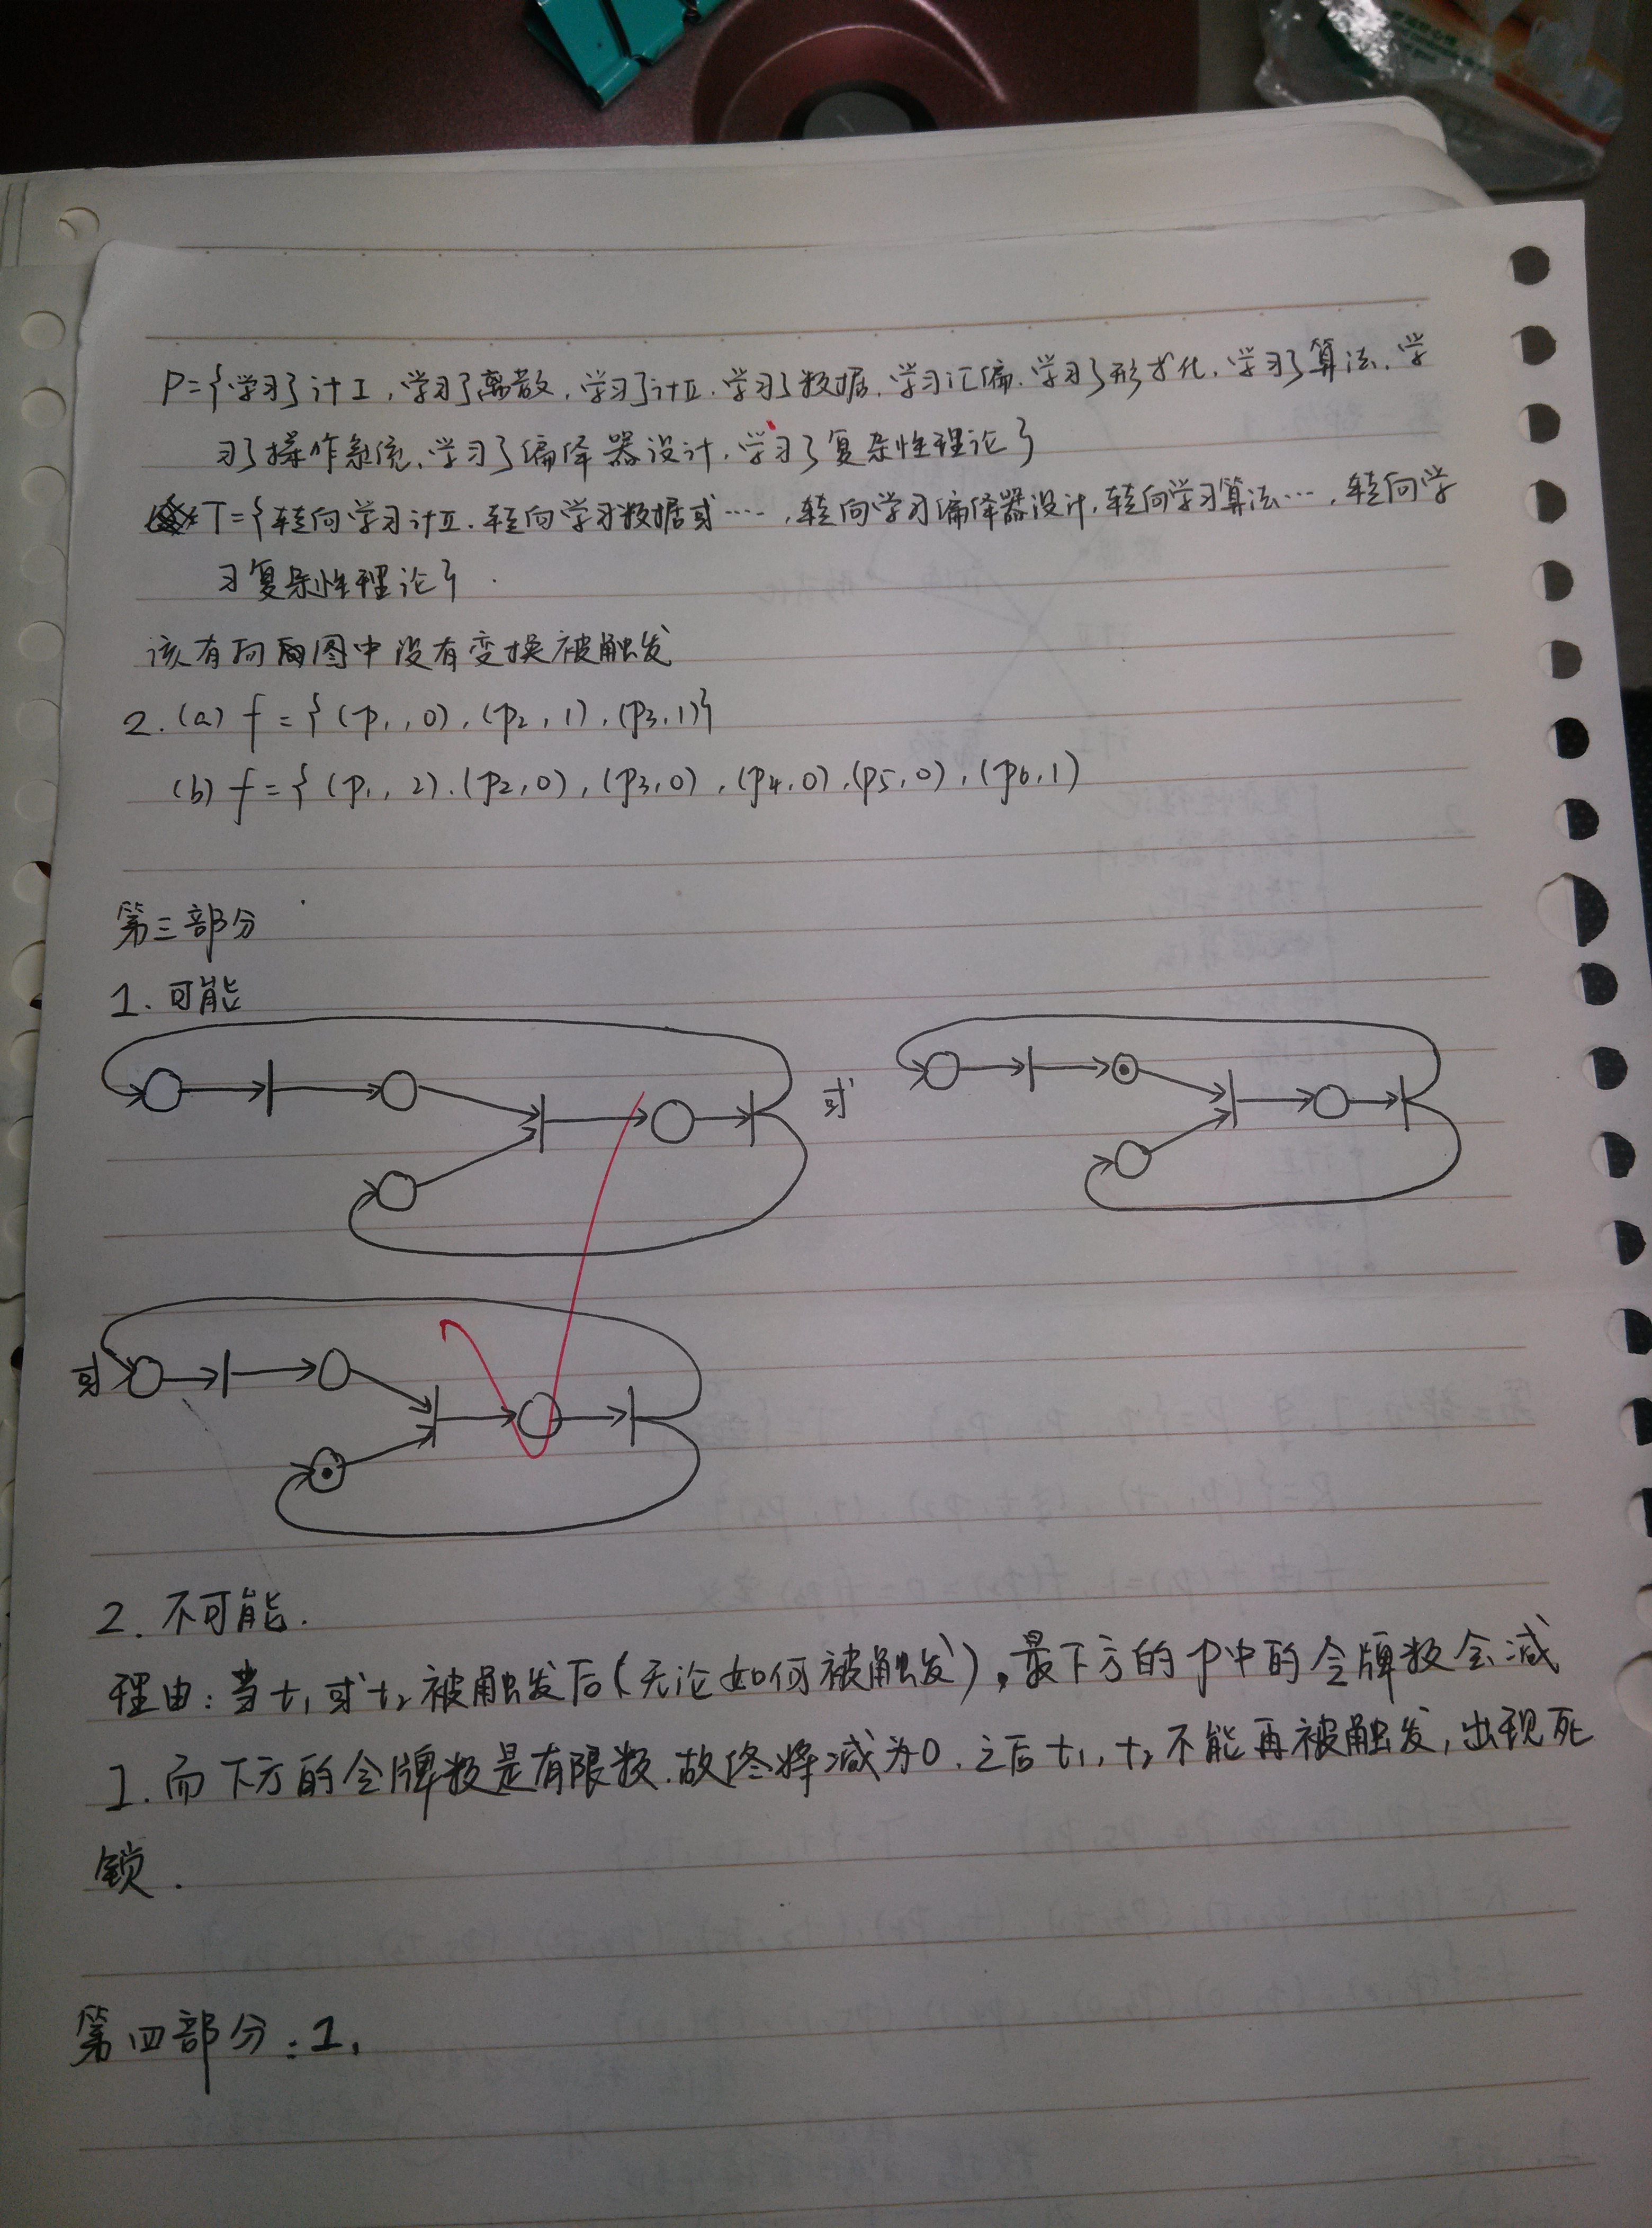 P={学习了计I,学习了离散,学习了计II.学习了数据.学习汇编.学习了形式化.学习了算法.学
习了操作系统、学习了编译器设计.学习了复杂性理论}
T={转向学习计II.转向学习数据或……,转向学习编译器设计,转向学习算法…,转向学
习复杂性理论}.
该有向图中没有变换被触发
2.(a) f={(p1,0),(p2,1),(p3,1)}
(b) f={(p1,2).(p2,0),(p3,0),(p4,0).(p5,0),(p6,1)
第三部分
1.可能
或
或
2.不可能.
理由:当t1或t2被触发后(无论如何被触发),最下方的P中的令牌数会减
1.而下方的令牌数是有限数.故终将减为0.之后t1,t2不能再被触发,出现死
锁.
第四部分:1.